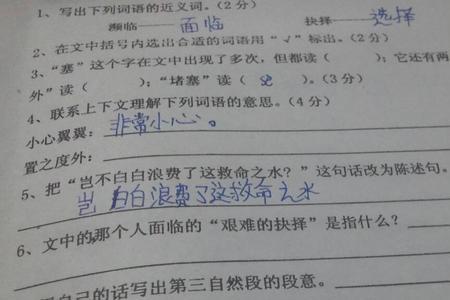 1、写出下列词语的近义词。(2分)
濒临——面临 抉择——选择
2、在文中括号内选出合适的词语用“√”标出。(2分)
3、“塞”这个字在文中出现了多次,但都读( );它还有两
外”读( );“堵塞”读( )。(3分)
4、联系上下文理解下列词语的意思。(4分)
小心翼翼:非常小心。
置之度外:
5、把“岂不白白浪费了这救命之水?”这句话改为陈述句。
岂 白白浪费了这救命之水
6、文中的那个人面临的“艰难的抉择”是指什么?
自己的话写出第三自然段的段意。